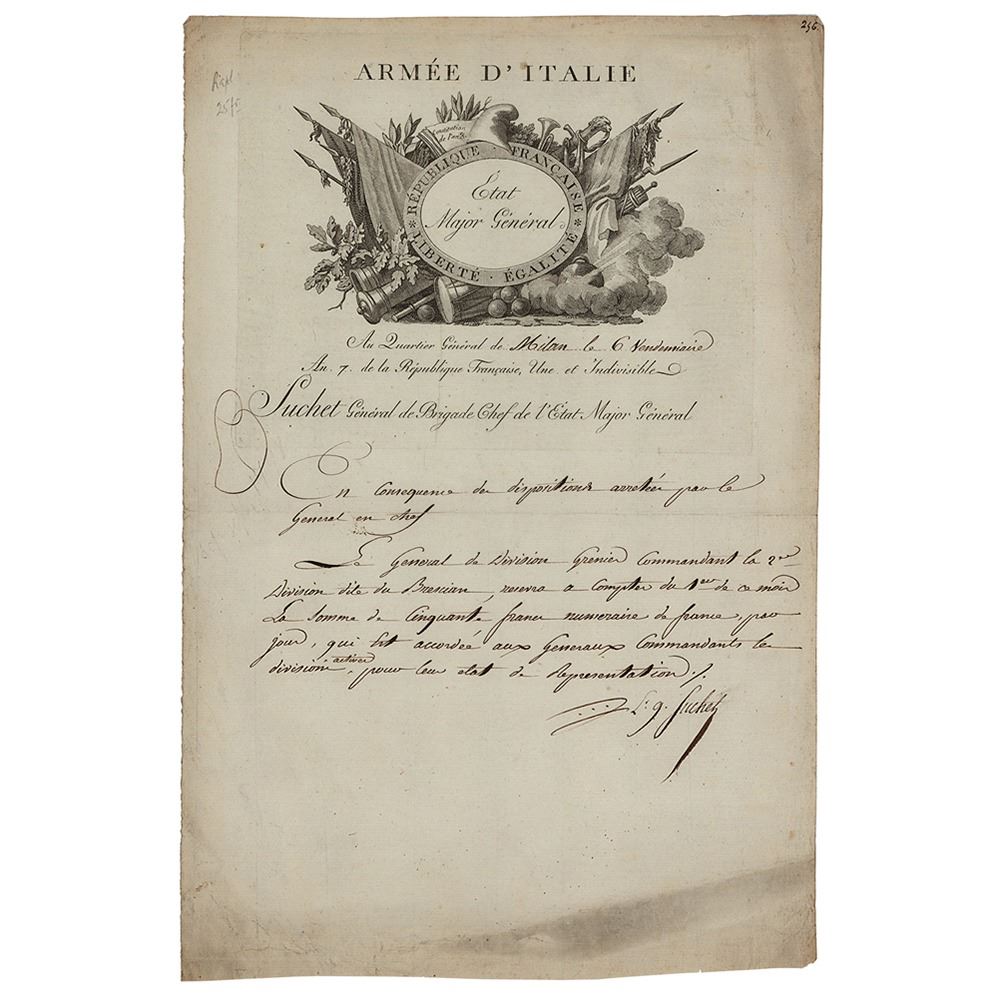 256.
ARMÉE D'ITALIE
2575
Constitution
de l'an 3.
RÉPUBLIQUE FRANÇAISE
État
Major Général
LIBERTÉ · ÉGALITÉ
Au Quartier Général de Milan le 6 Vendemiaire
An 7. de la République Française, Une et Indivisible
Suchet Général de Brigade Chef de l'État Major Général
En Consequence des dispositions arretées par le
General en chef
Le General de Division Grenier Commandant la 2eme
Division dite du Brescian, recevra a Compter du 1er de ce mois
La Somme de Cinquante francs numeraire de france, par
jour, qui Est accordée aux Generaux Commandants les
divisions actives, pour leur etat de Representation ./.
L. g. Suchet